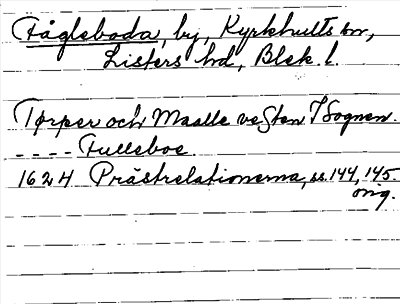 Fågleboda, by, Kyrkhults sn,
Listers hd, Blek. l.
Tørper och Maalle vesten I Sognen.
---- Fulleboe
1624 Prästrelationerna, ss. 144, 145.
orig.